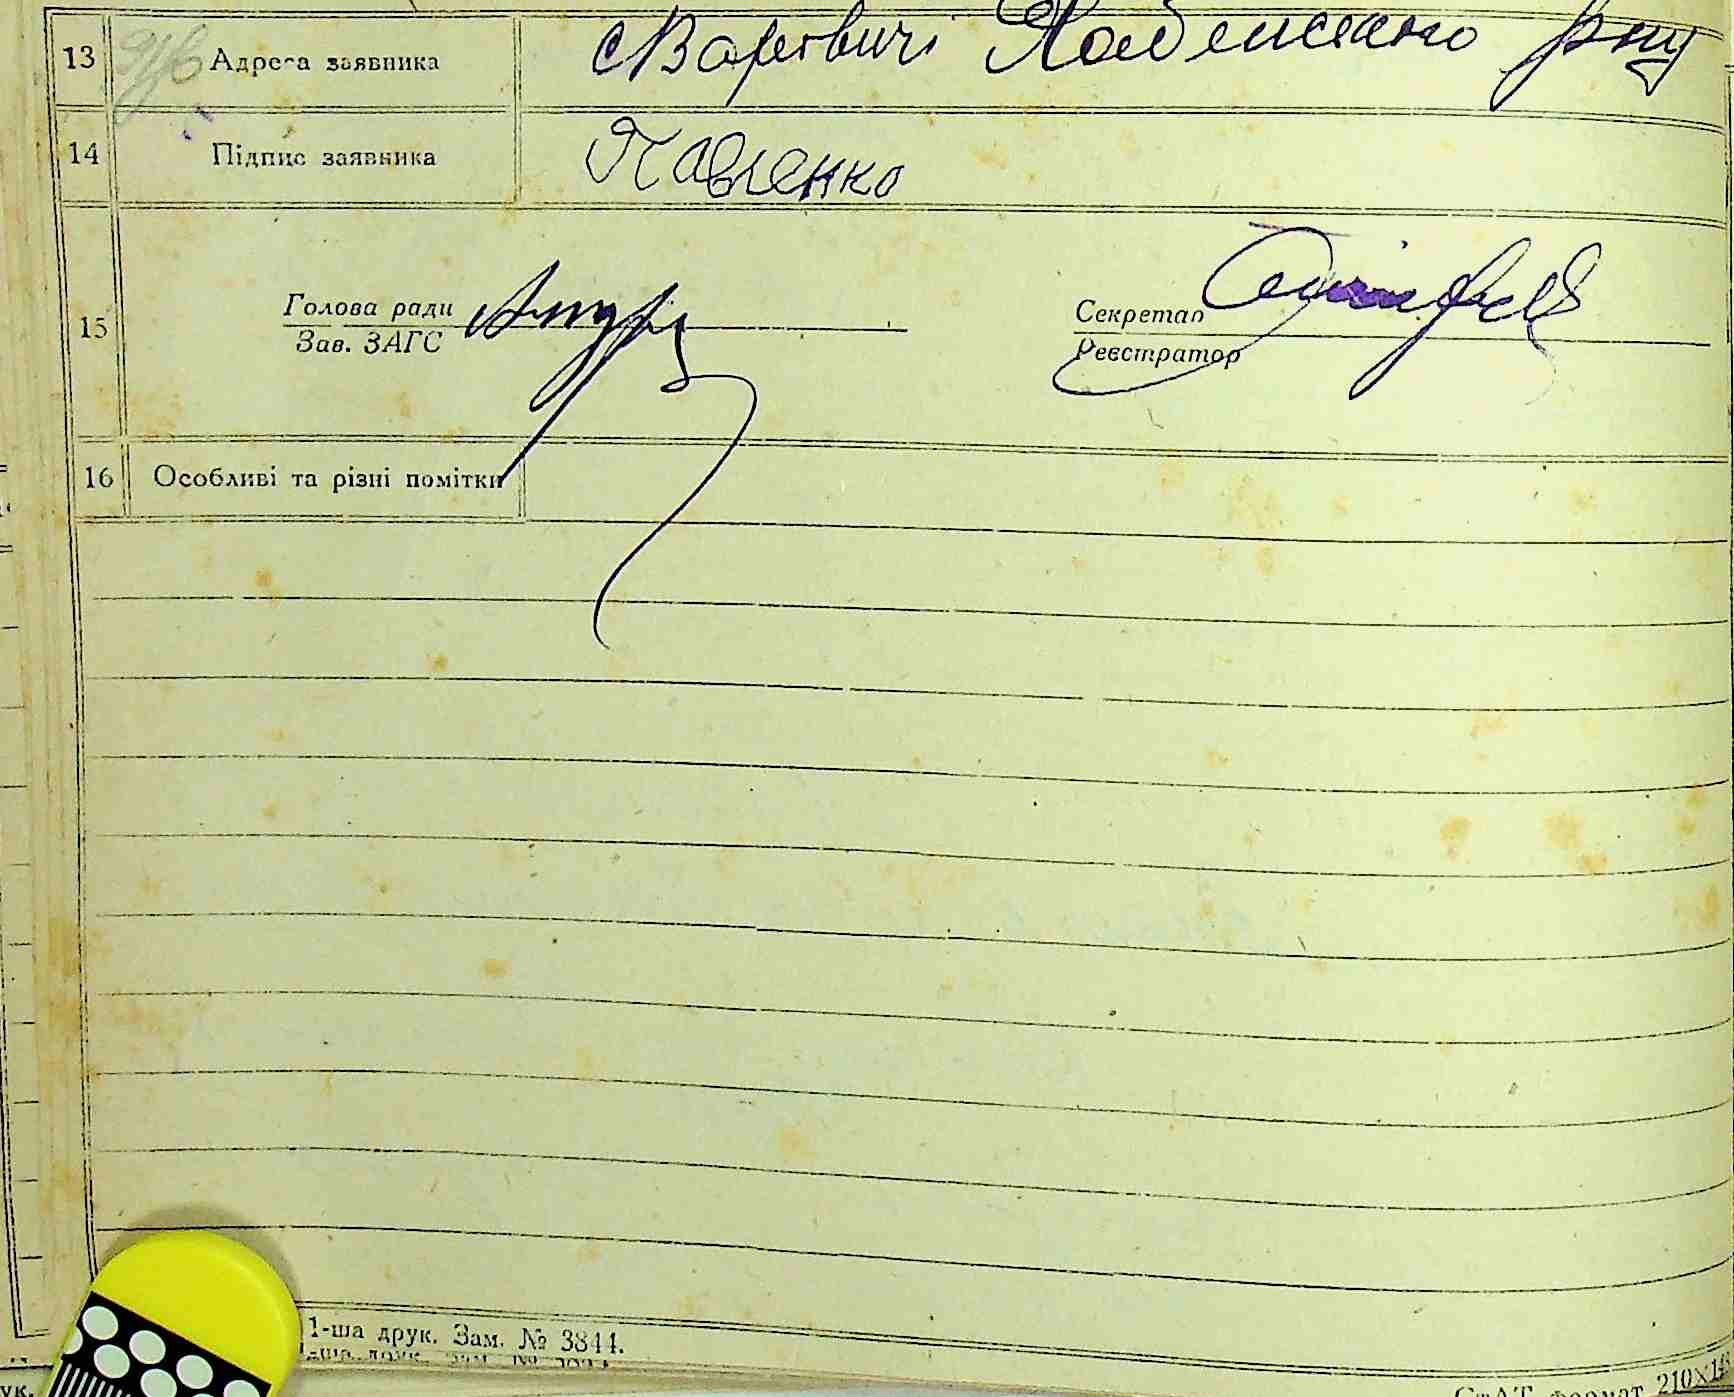 13 Адреса заявника с Варовичі Хабенского рну
14 Підпис заявника Павленко
15 Голова ради Секретар
Зав. ЗАГС Реєстратор
16 Особливі та різні помітки
1-ша друк. Зам. № 3844.
ук. СтАТ формат 210×14